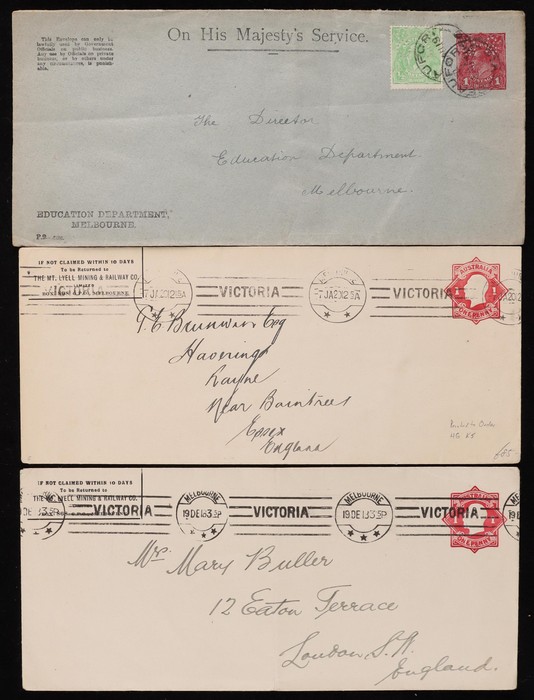 This Envelope can only be
lawfully used by Government
Officials on public business.
Any use by Officials on private
business, or by others under
any circumstances, is punish-
able.
On His Majesty's Service.
The Director
Education Department
Melbourne.
EDUCATION DEPARTMENT,
MELBOURNE.
IF NOT CLAIMED WITHIN 10 DAYS
To be Returned to
THE MT. LYELL MINING & RAILWAY CO.
LIMITED
MELBOURNE.
VICTORIA
VICTORIA
VICTORIA
AUSTRALIA
ONE PENNY
Esq
Haverings
Rayne
Near Braintree
Essex
England
£85
IF NOT CLAIMED WITHIN 10 DAYS
To be Returned to
THE MT. LYELL MINING & RAILWAY CO.
MELBOURNE
19 DE 13 3.30P
MELBOURNE
19 DE 13 3.30P
VICTORIA
VICTORIA
VICTORIA
AUSTRALIA
ONE PENNY
Mrs Mary Buller
12 Eaton Terrace
London S.W.
England.